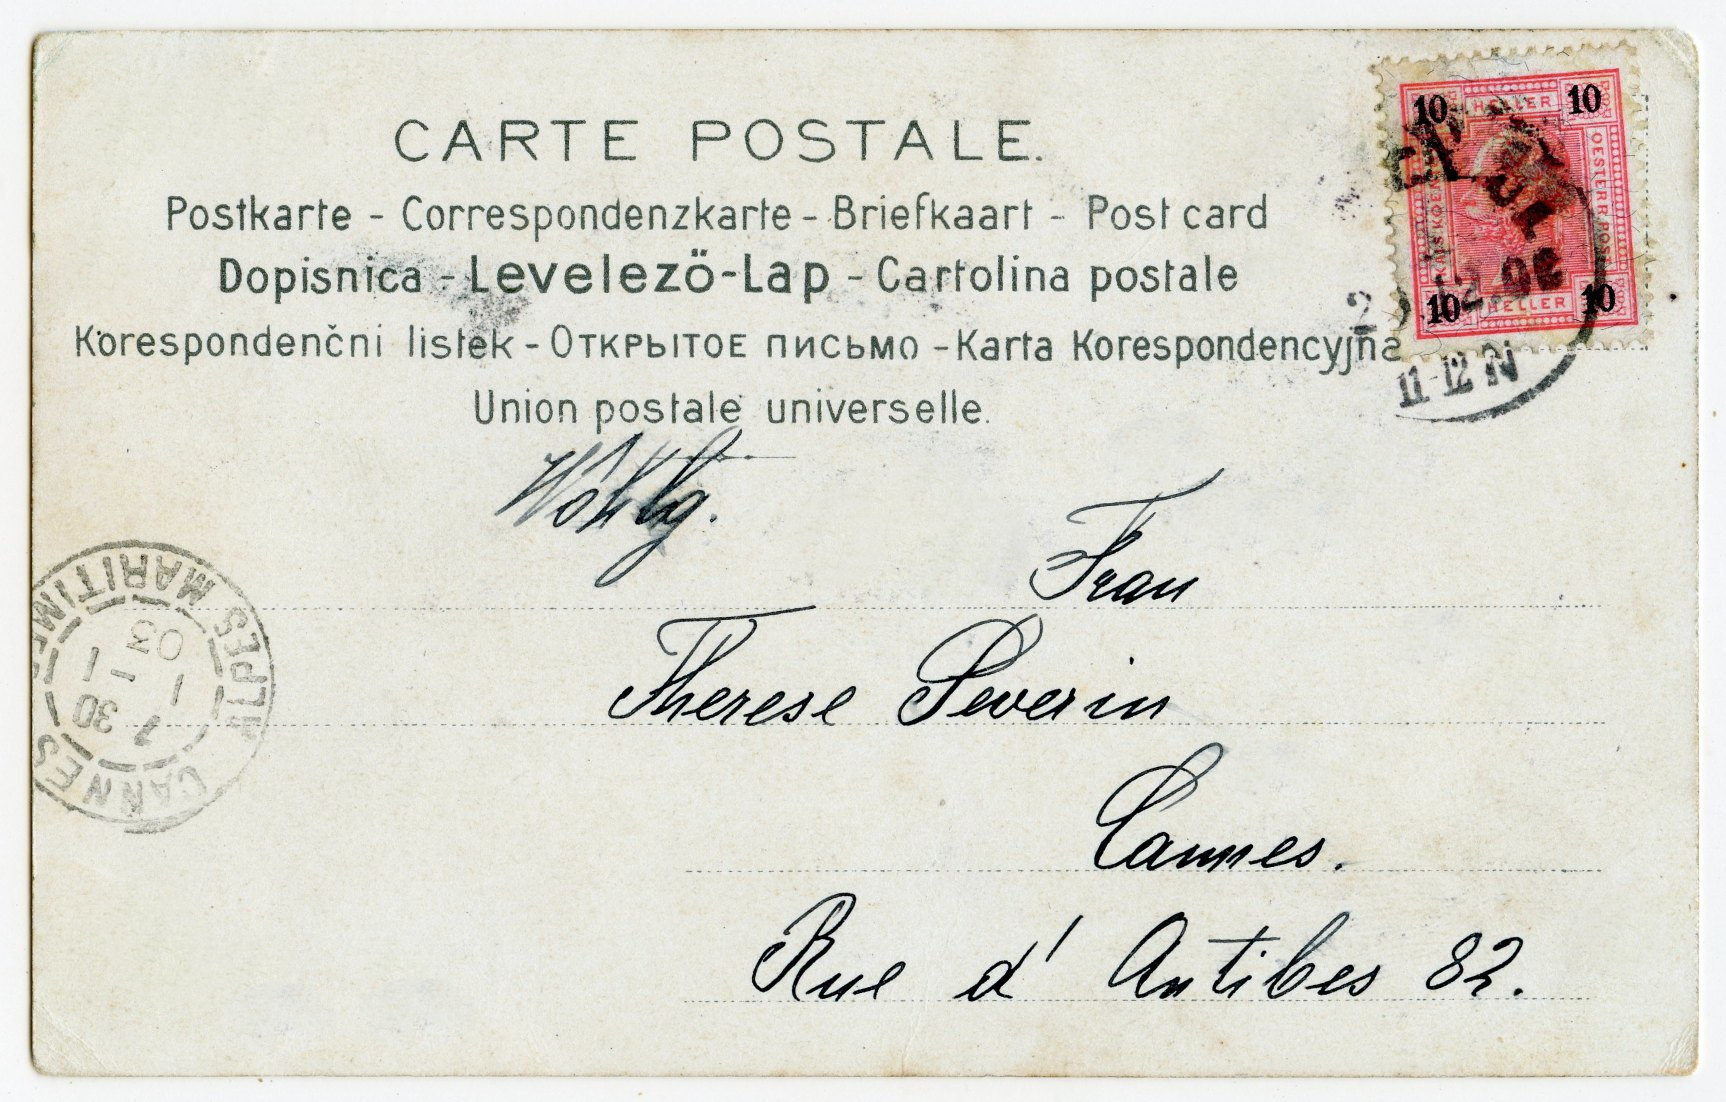 CARTE POSTALE.
Postkarte - Correspondenzkarte - Briefkaart - Post card
Dopisnica - Levelező-Lap - Cartolina postale
Korespondenčni listek - Открытое письмо - Karta Korespondencyjna
Union postale universelle.
10 HELLER 10
OESTERR. POST
10 HELLER 10
2 12 02
11-12 N
Frau
Therese Severin
Cannes.
Rue d'Antibes 82.
CANNES
ALPES MARITIMES
7 30
1 1
03